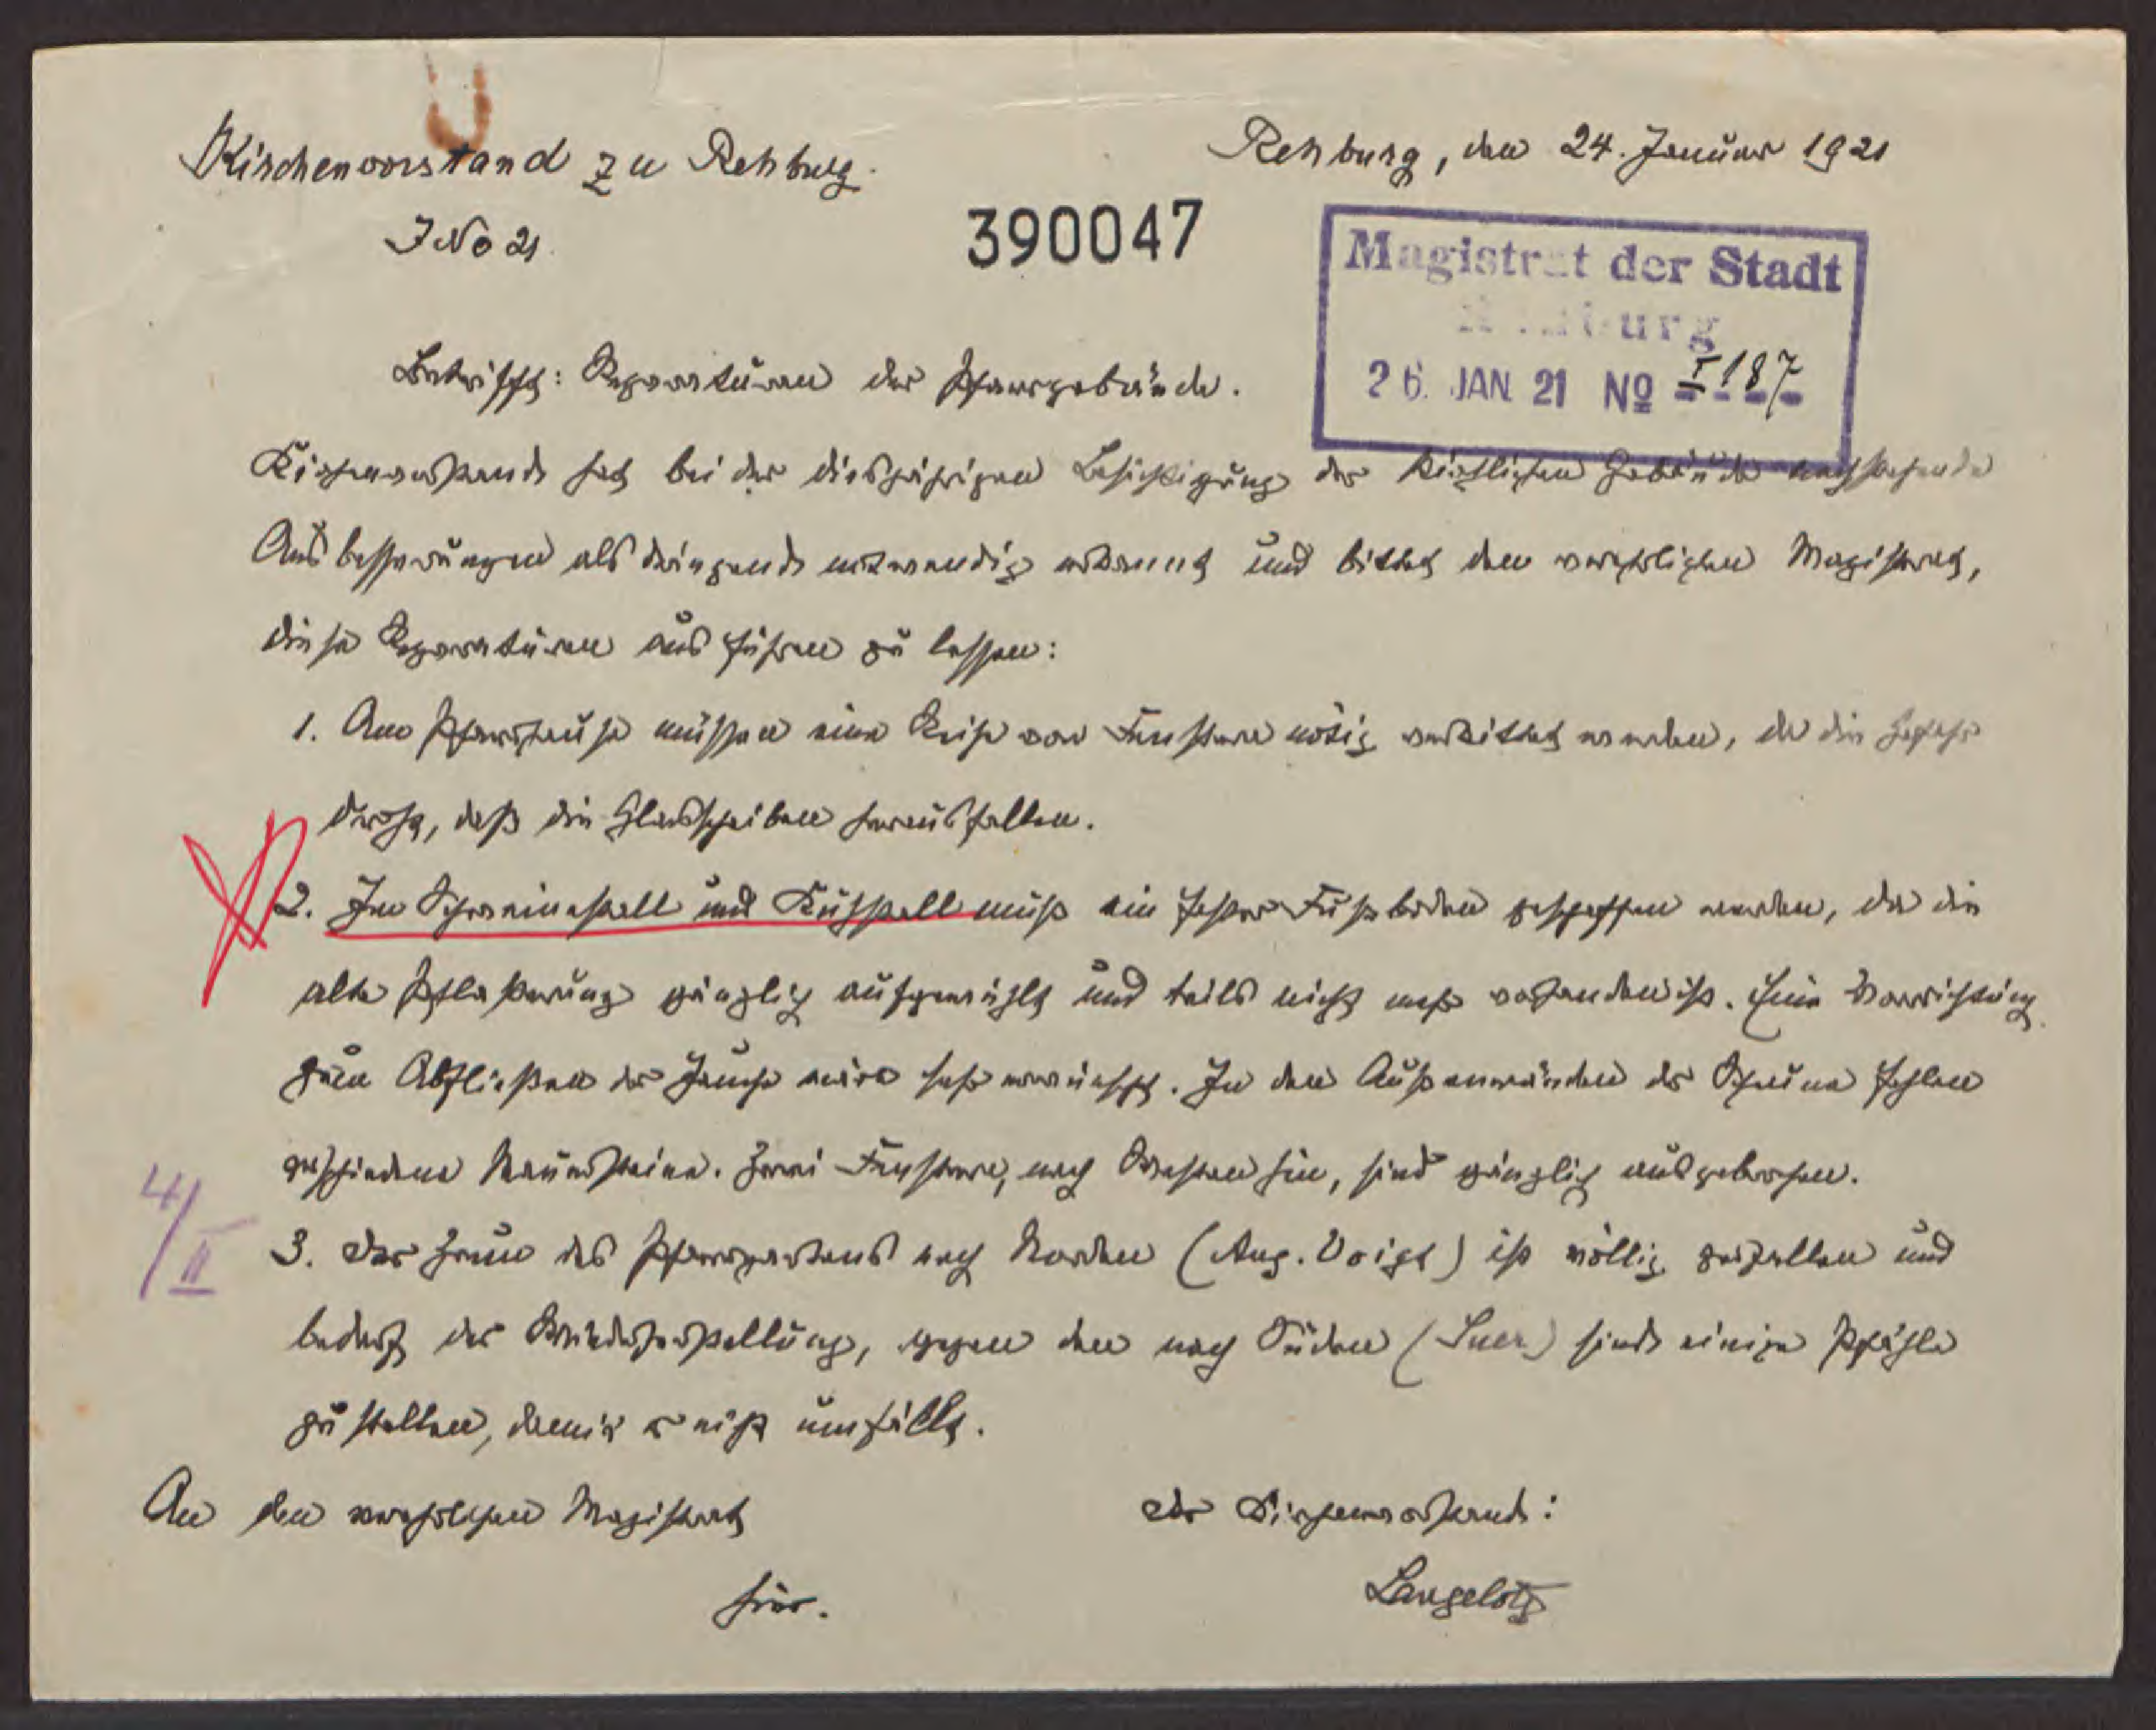 Kirchenvorstand zu Rehburg.
Rehburg, den 24. Januar 1921
J No 21.
390047
Magistrat der Stadt
Rehburg
26. JAN 21 No I 187
Betrifft: Reparaturen der Pfarrgebäude.
Kirchenvorstand hat bei der diesjährigen Besichtigung der kirchlichen Gebäude nachstehende
Ausbesserungen als dringend notwendig erkannt und bittet den verehrlichen Magistrat,
diese Reparaturen ausführen zu lassen:
1. Am Pfarrhause müssen eine Reihe von Fenstern nötig verkittet werden, da die Gefahr
droht, daß die Glasscheiben herausfallen.
2. Im Schweinestall und Kuhstall muß ein fester Fußboden geschaffen werden, da die
alte Pflasterung gänzlich aufgewühlt und teils nicht mehr vohanden ist. Eine Vorrichtung
zum Abfließen der Jauche wäre sehr erwünscht. In den Außenwänden der Scheune fehlen
verschiedene Mauersteine. Zwei Fenster, nach Westen hin, sind gänzlich ausgebrochen.
4/II
3. Der Zaun des Pfarrgartens nach Norden (Aug. Voigt) ist völlig zerfallen und
bedarf der Wiederherstellung, gegen den nach Süden (Suer) sind einige Pfähle
zu stellen, damit er nicht umfällt.
An den verehrlichen Magistrat
Der Kirchenvorstand:
hier.
Langelotz